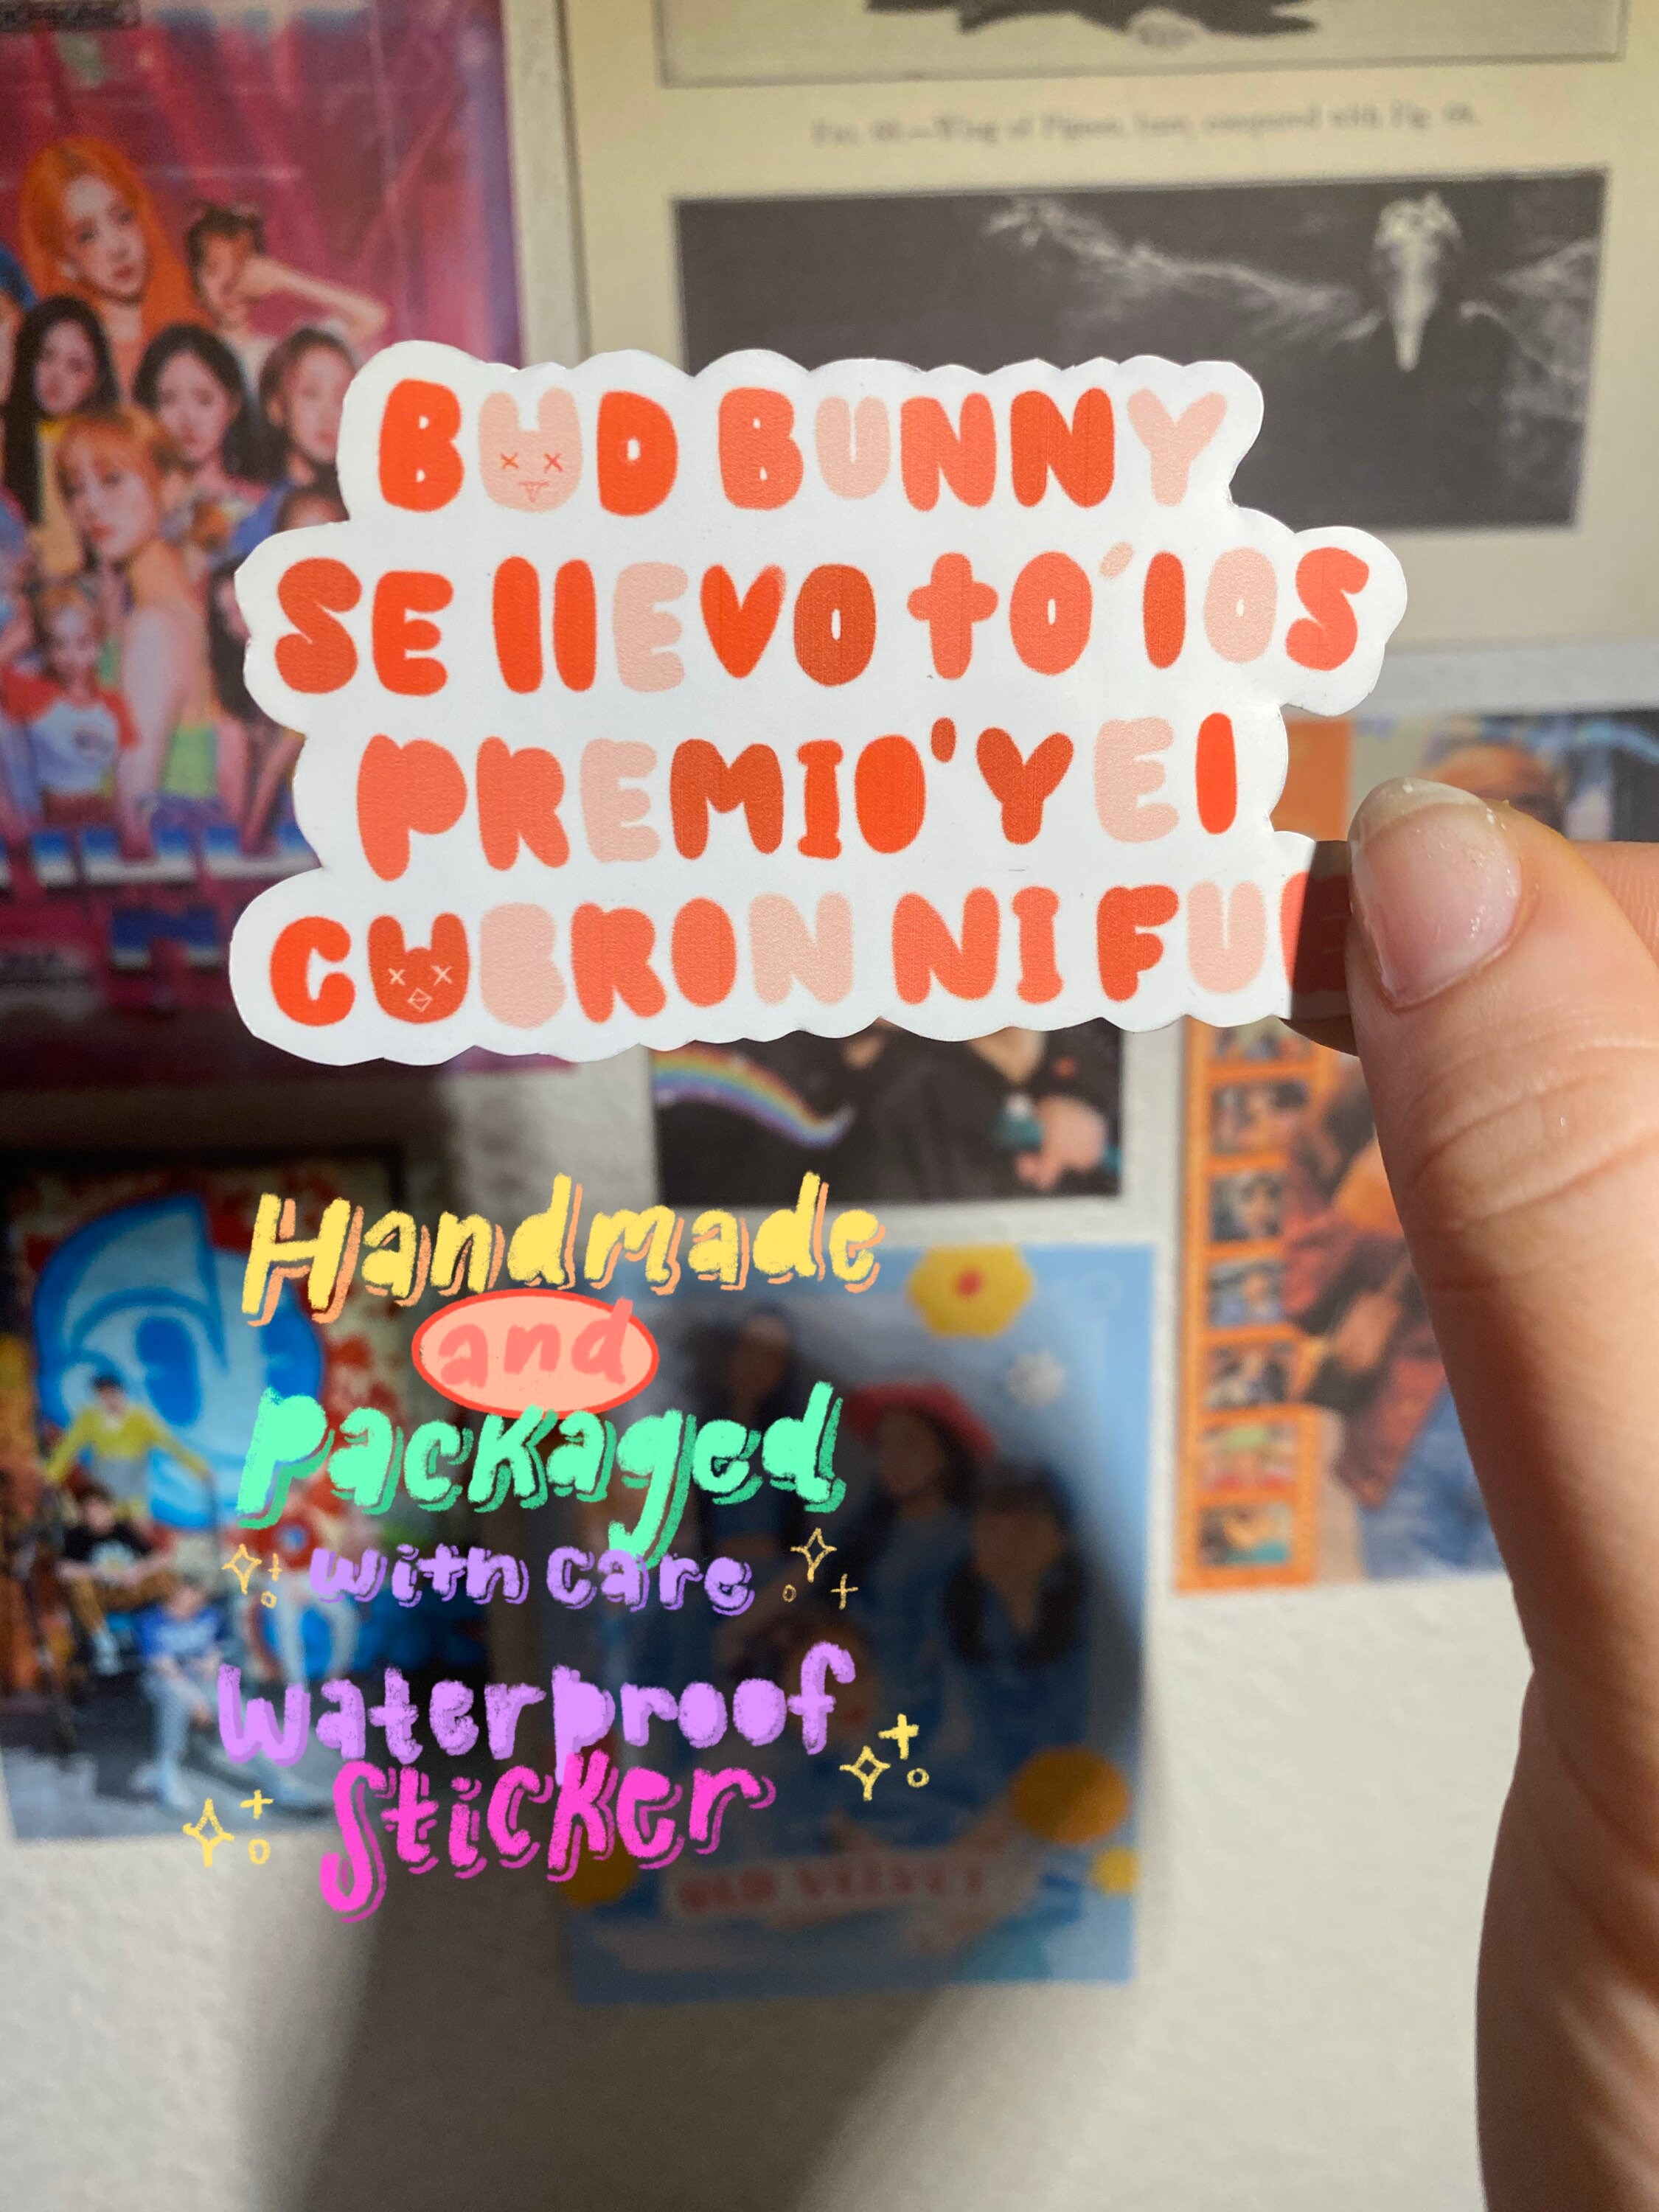 Fig. 69.—Wing of Pigeon, bare, compared with Fig. 68.
BAD BUNNY
SE llEVO tO' lOS
PREMIO' Y El
CABRON NI FU
Handmade
and
Packaged
with care
Waterproof
Sticker
RED VELVET